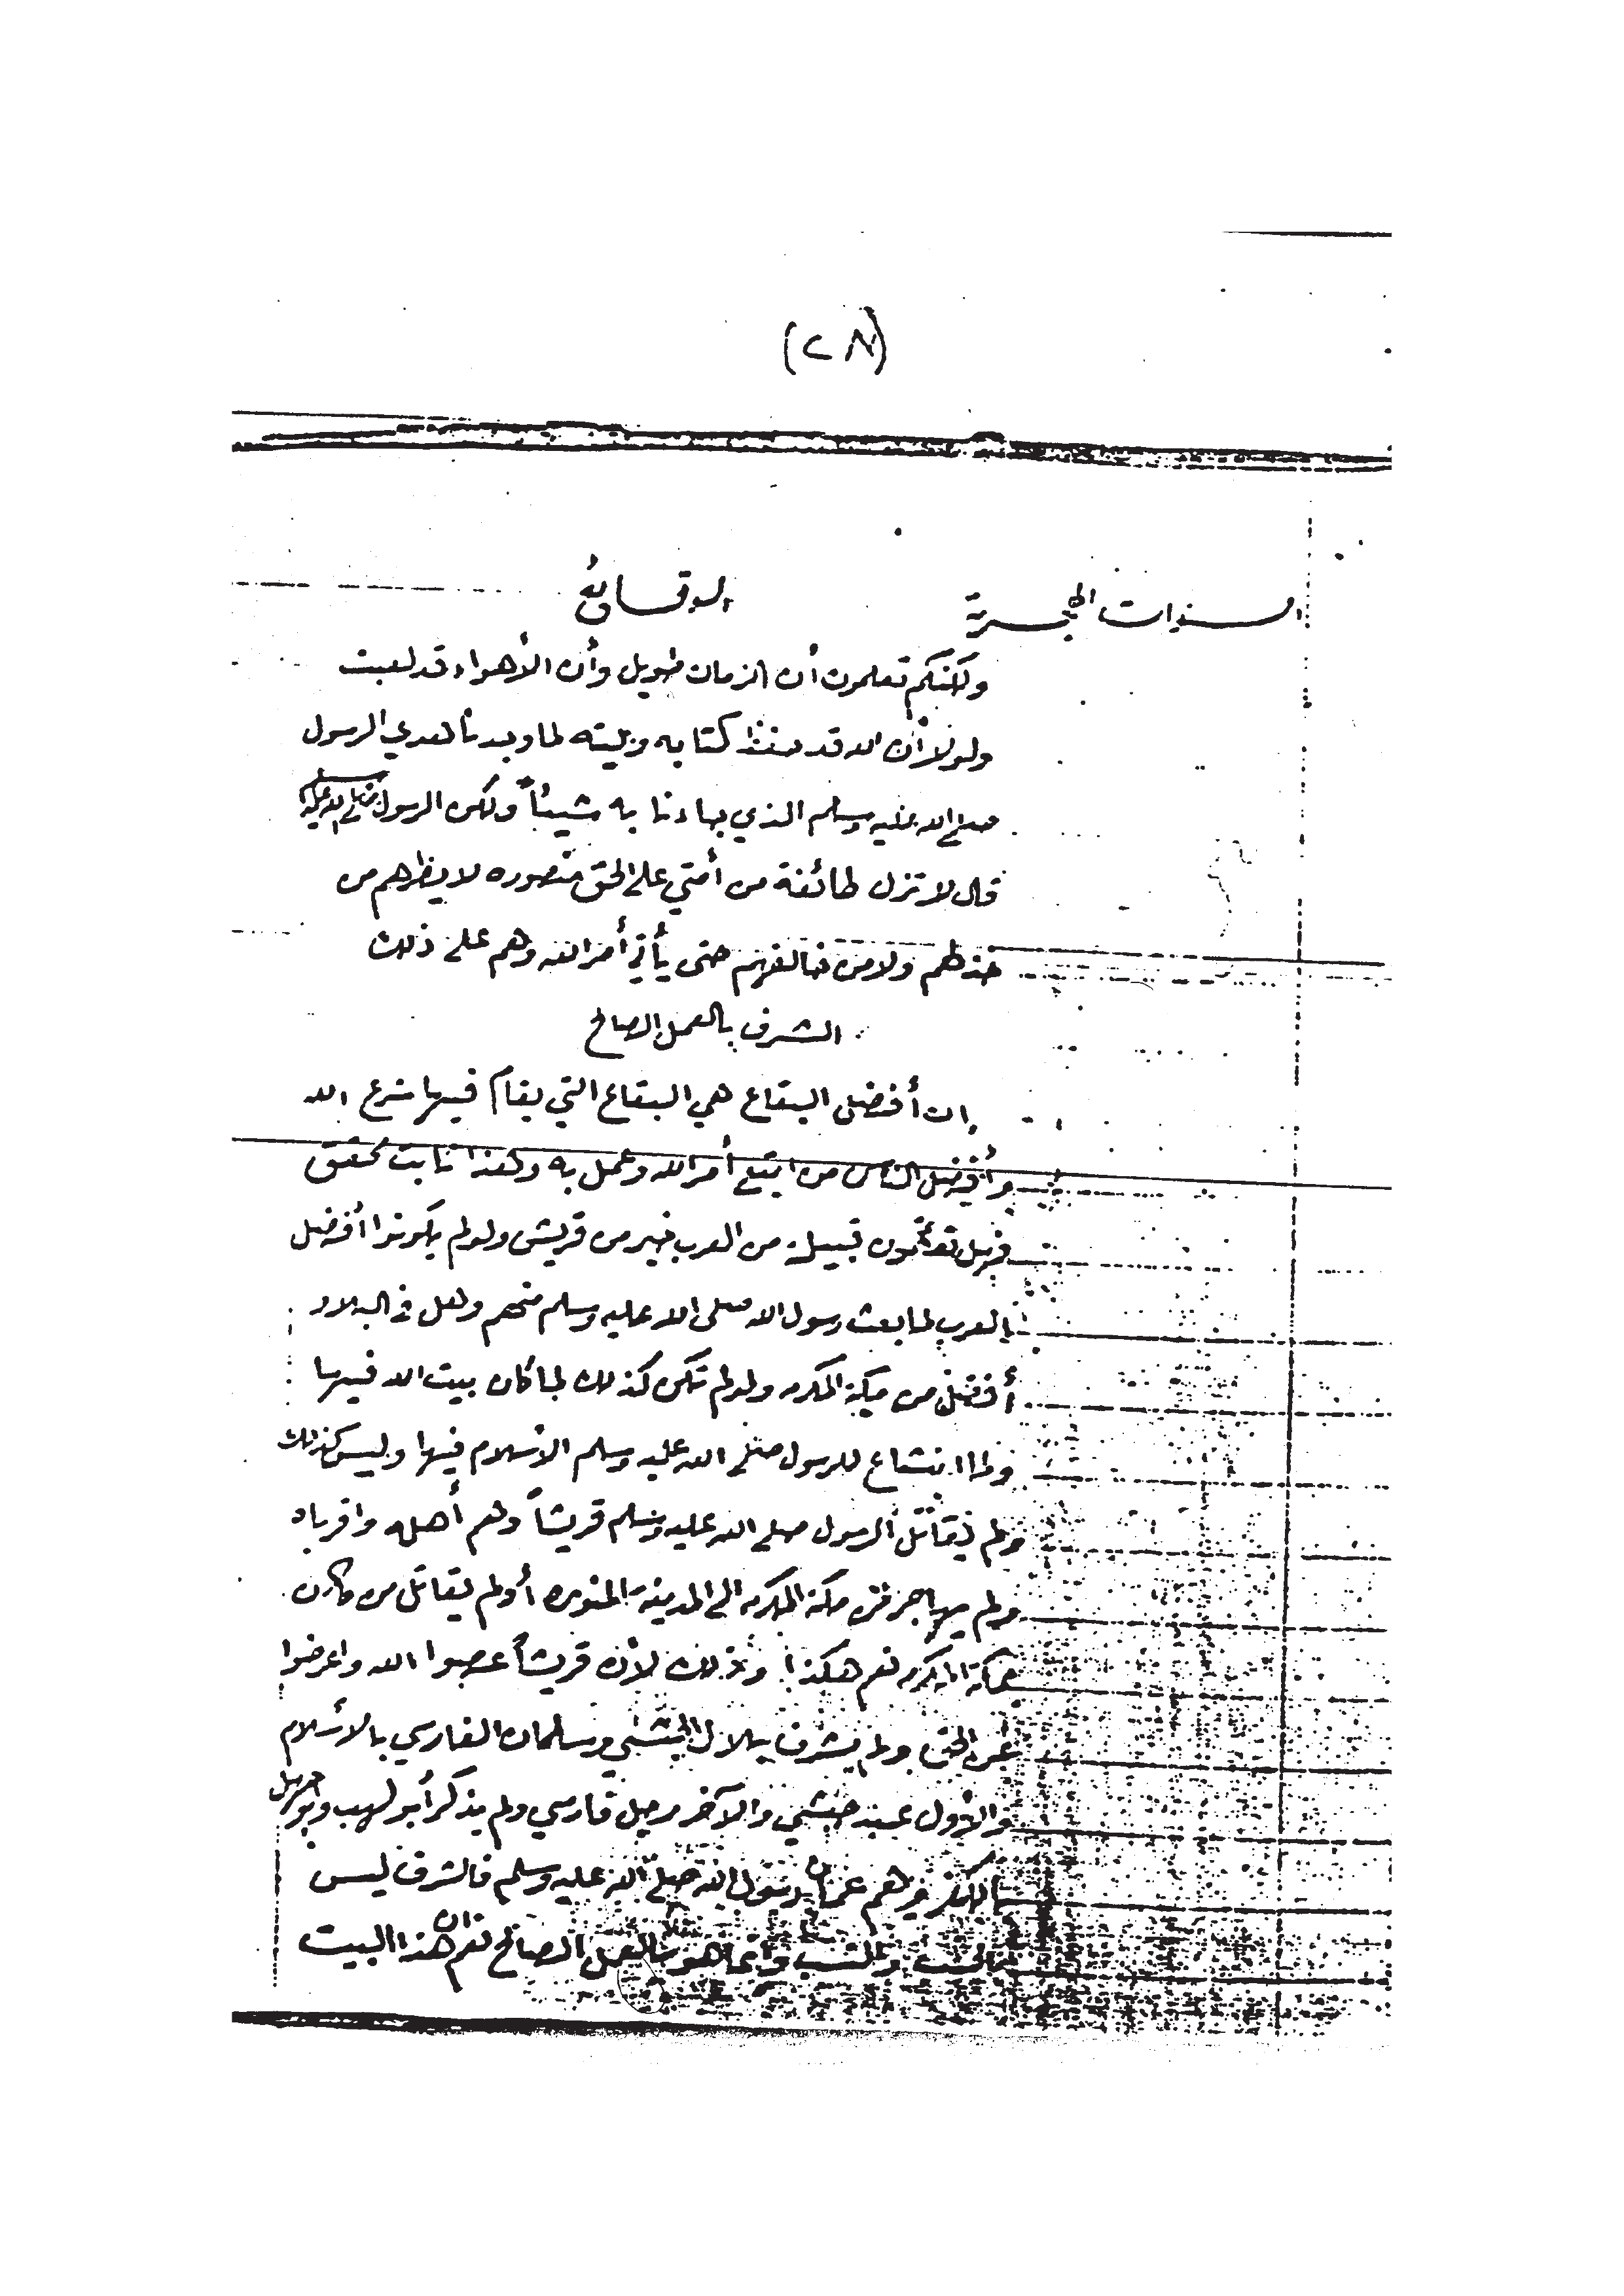 (٢٨)
السنوات الهجرية
الوقائع
ولكنكم تعلمون أن الزمان طويل وأن الأهواء قد لعبت
ولولا أن الله قد حفظ كتابه وبيته لما وجدنا هدي الرسول
صلى الله عليه وسلم الذي جاءنا به شيئاً ولكن الرسول صلى الله عليه وسلم
قال لا تزل طائفة من أمتي على الحق منصوره لا يظرهم من
خذلهم ولا من خالفهم حتى يأتي أمر الله وهم على ذلك
الشرف بالعمل الصالح
إن أفضل البقاع هي البقاع التي يقام فيها شرع الله
وأفضل الناس من اتبع أمر الله وعمل به وهذا ثابت محقق
فهل تعلمون قبيلة من العرب خير من قريش ولو لم يكونوا أفضل
العرب لما بعث رسول الله صلى الله عليه وسلم منهم وهل في البلاد
أفضل من مكة المكرمه ولو لم تكن كذلك لما كان بيت الله فيها
ولما انشاع للرسول صلى الله عليه وسلم الأسلام فيها وليس كذلك
ولم يقاتل الرسول صلى الله عليه وسلم قريشاً وهم أهله واقرباه
ولم يهاجر من مكة المكرمه الى المدينة المنوره أولم يقاتل من كان
بمكة المكرمه نعم هكذا وذلك لأن قريشاً عصوا الله واعرضوا
عن الحق ولم يشرف بلال الحبشي وسلمان الفارسي بالأسلام
والأول عبد حبشي والآخر رجل فارسي ولم يذكر أبو لهب وبوجهل
بالكفر وهم عمان رسول الله صلى الله عليه وسلم فالشرف ليس
بالحسب والنسب وإنما هو بالعمل الصالح نعم ان هذا البيت